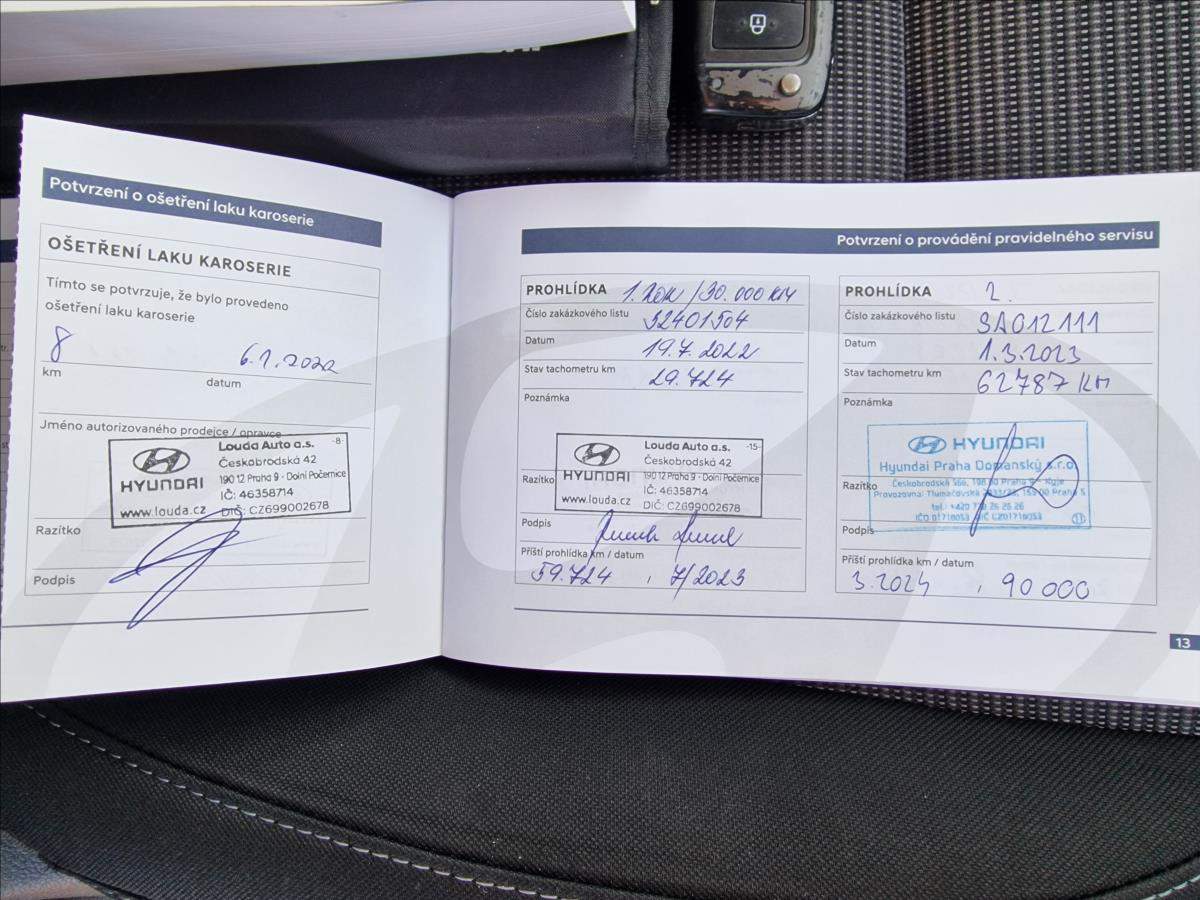 Potvrzení o ošetření laku karoserie
OŠETŘENÍ LAKU KAROSERIE
Tímto se potvrzuje, že bylo provedeno
ošetření laku karoserie
8
6.1.2022
km
datum
Jméno autorizovaného prodejce / opravce
HYUNDAI
www.louda.cz
Louda Auto a.s. -8-
Českobrodská 42
190 12 Praha 9 - Dolní Počernice
IČ: 46358714
DIČ: CZ699002678
Razítko
Podpis
Potvrzení o provádění pravidelného servisu
PROHLÍDKA 1. ROK / 30.000 KM
Číslo zakázkového listu 32401504
Datum 19.7.2022
Stav tachometru km 29.724
Poznámka
HYUNDAI
www.louda.cz
Louda Auto a.s. -15-
Českobrodská 42
190 12 Praha 9 - Dolní Počernice
IČ: 46358714
DIČ: CZ699002678
Razítko
Podpis
Příští prohlídka km / datum
59.724 , 7/2023
PROHLÍDKA 2.
Číslo zakázkového listu SA012111
Datum 1.3.2023
Stav tachometru km 62787 KM
Poznámka
HYUNDAI
Hyundai Praha Domanský s.r.o.
Českobrodská 566, 198 00 Praha 9 - Kyje
Razítko
Podpis
Příští prohlídka km / datum
3.2024 , 90 000
13